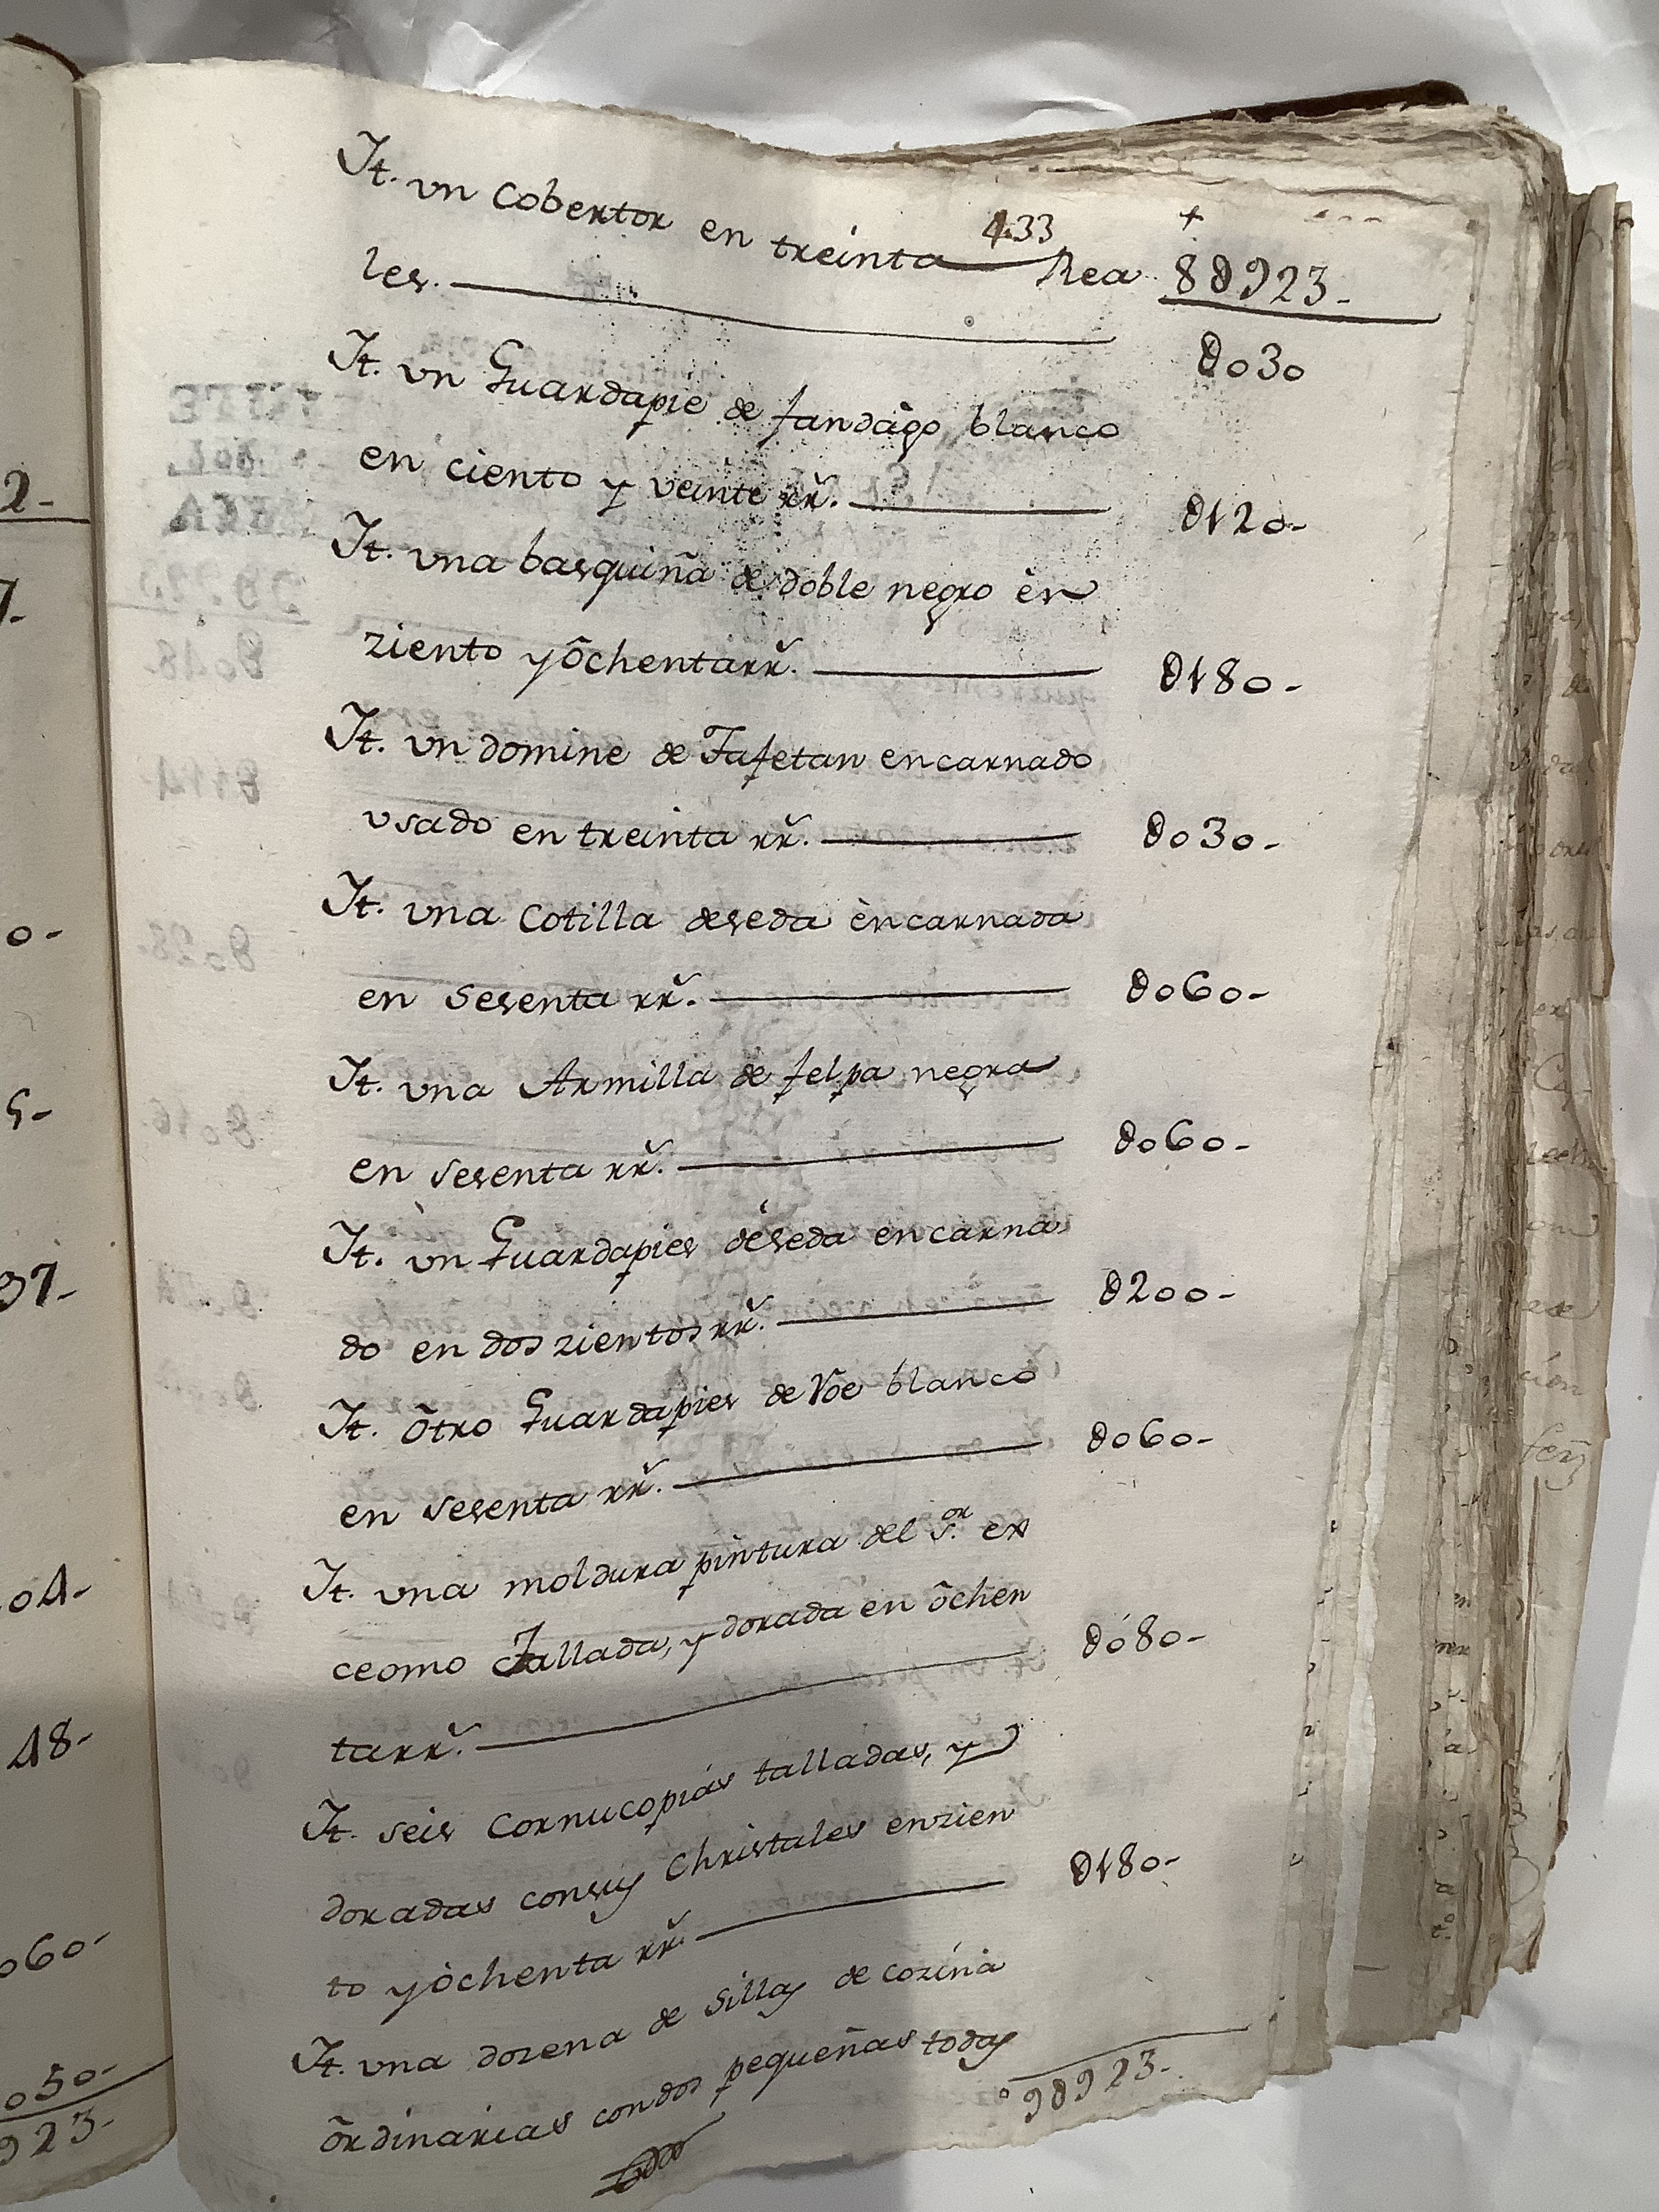 2-
7.
0-
5-
37-
04-
48-
060-
050-
923-
433
+
It. vn Cobertor en treinta Rea 8923-
les. 030
It. vn Guardapie de fandàgo blanco
en ciento y veinte rr. 120-
It. vna basquiña de doble negro èn
ziento y ôchenta rr. 180-
It. vn domine de Tafetan encarnado
vsado en treinta rr. 030-
It. vna Cotilla deseda èncarnada
en Sesenta rr. 060-
It. vna Armilla de felpa negra
en sesenta rr. 060-
It. vn Guardapies déseda encarna
do en dos zientos rr. 200-
It. ôtro Guardapies de Noe blanco
en sesenta rr. 060-
It. vna moldura pintura del S.or ex
ceomo Tallada, y dorada en ôchen
ta rr. 080-
It. seis Cornucopiàs talladas, y
doradas consus Christales enzien
to y òchenta rr. 180-
It. vna dozena de Sillas de cozína
ôrdinarias condos pequeñas todas
9923-